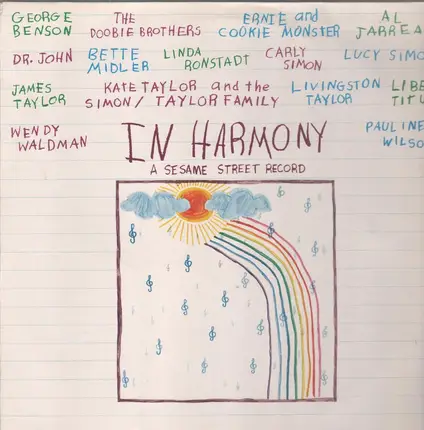 GEORGE BENSON
THE DOOBIE BROTHERS
ERNIE and COOKIE MONSTER
AL JARREA
DR. JOHN
BETTE MIDLER
LINDA RONSTADT
CARLY SIMON
LUCY SIMO
JAMES TAYLOR
KATE TAYLOR and the SIMON / TAYLOR FAMILY
LIVINGSTON TAYLOR
LIBE
TITU
WENDY WALDMAN
PAULINE WILSO
IN HARMONY
A SESAME STREET RECORD